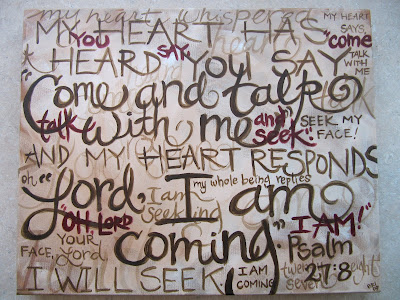 my heart whispered
MY HEART HAS
YOU SAY
MY HEART SAYS
"come
TALK WITH ME
HEARD YOU SAY
"Come and talk
talk with me and seek"
SEEK MY FACE!
AND MY HEART RESPONDS
oh "Lord, I am
my whole being replies
I am seeking
"OH LORD
I AM!"
coming"
YOUR FACE, Lord
I WILL SEEK.
I AM COMING
Psalm
27:8
twenty seven eight